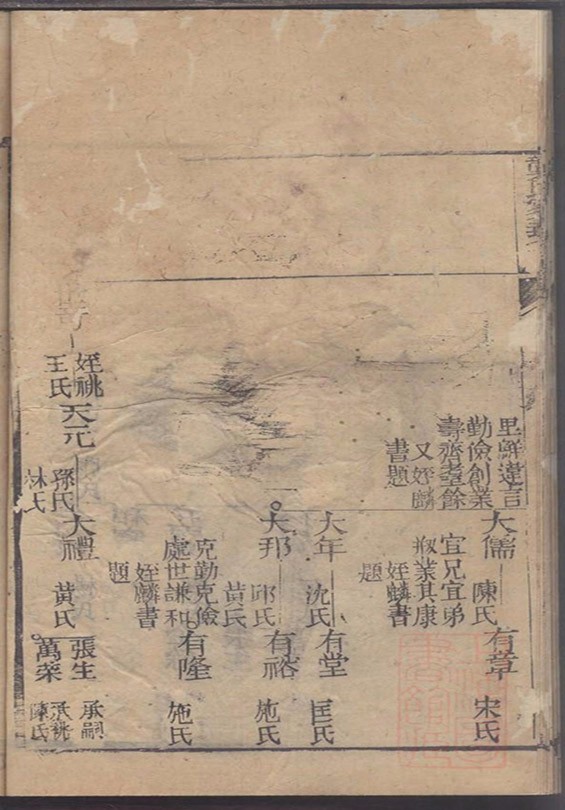 里鮮違言
勤儉創業
壽齊耋餘
又姪麟
書題
大儒
陳氏
宜兄宜弟
叔業其康
姪麟書
題
有章
宋氏
大年
沈氏
有堂
匡氏
大邦
邱氏
黄氏
有裕
施氏
克勤克儉
處世謙和
姪麟書
題
有隆
施氏
姪祧
王氏
天元
孫氏
林氏
大禮
黄氏
張生
承嗣
萬荣
承祧
陳氏